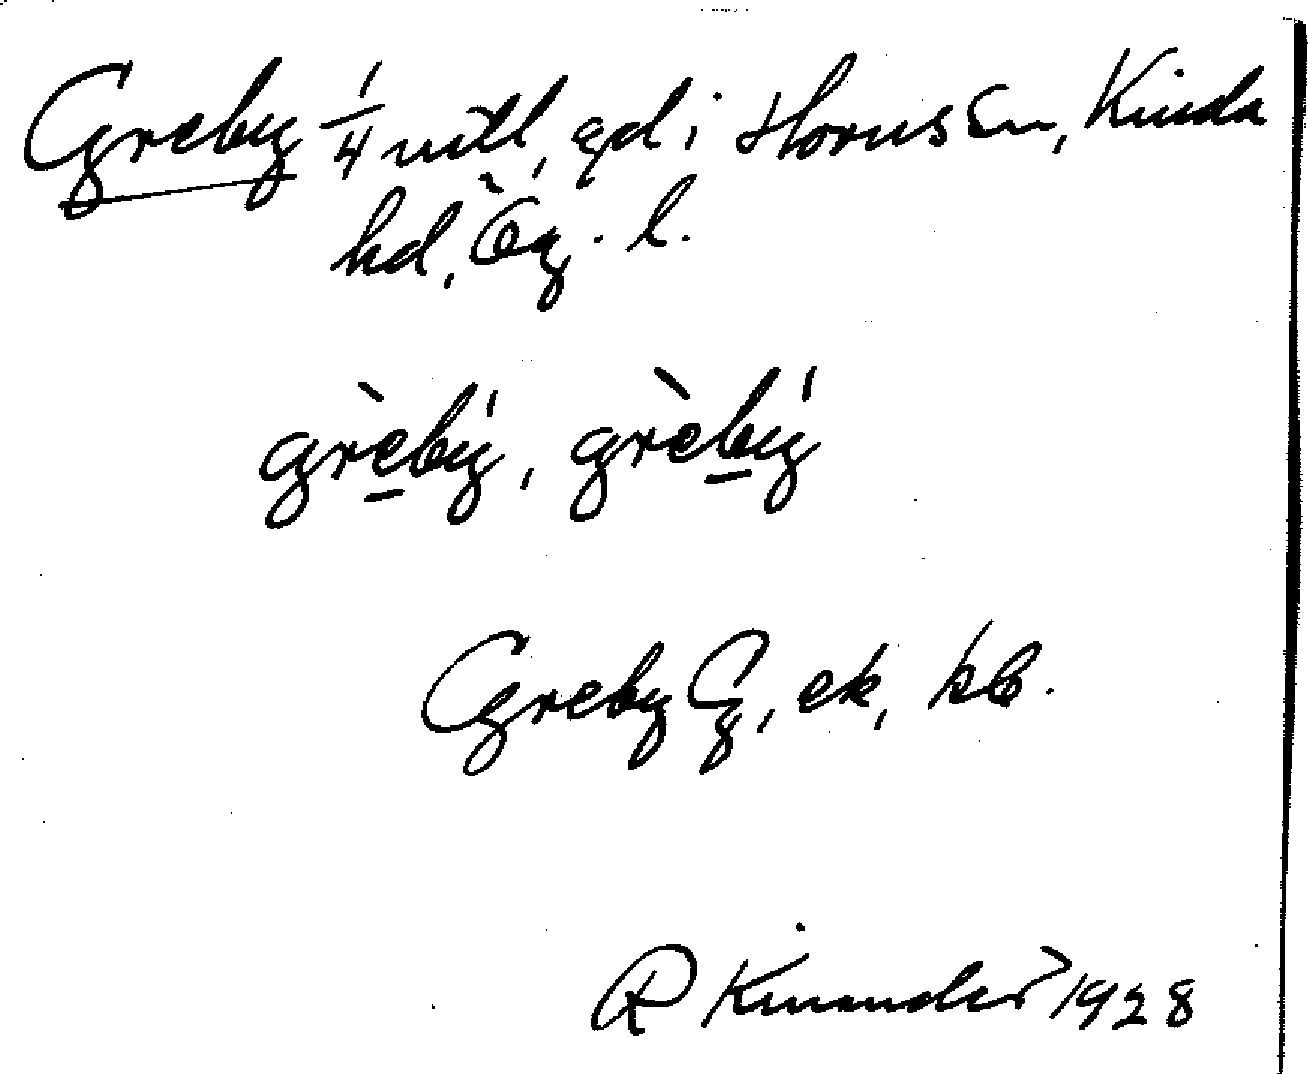 Greby 1/4 mtl, gd i Horns sn, Kinda
hd, Ög. l.
grèbý, grèbý
Greby G, ek, kb.
R Kinander 1928